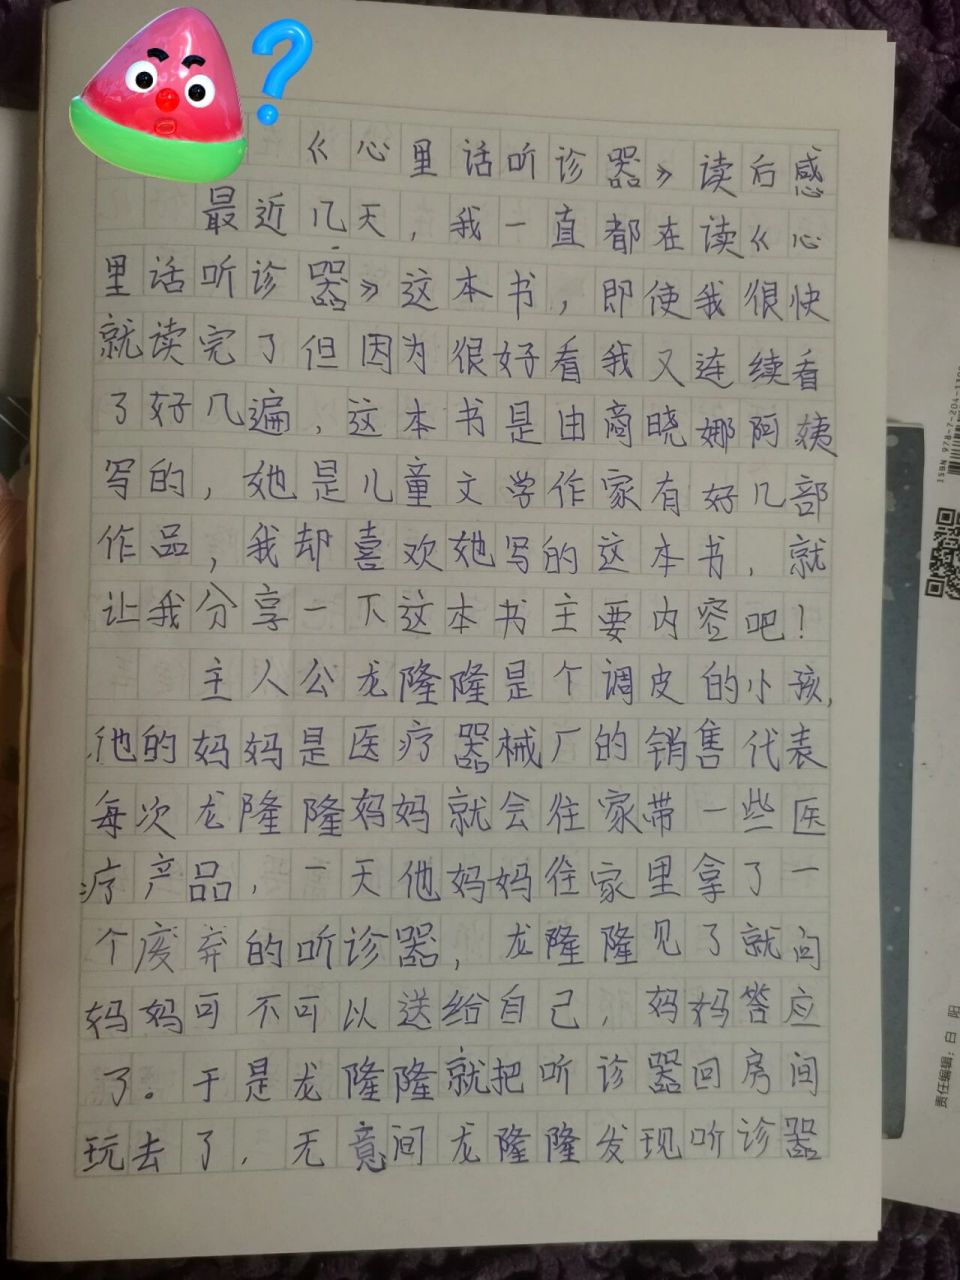 《心里话听诊器》读后感
最近几天,我一直都在读《心
里话听诊器》这本书,即使我很快
就读完了但因为很好看我又连续看
了好几遍,这本书是由商晓娜阿姨
写的,她是儿童文学作家有好几部
作品,我却喜欢她写的这本书,就
让我分享一下这本书主要内容吧!
主人公龙隆隆是个调皮的小孩,
他的妈妈是医疗器械厂的销售代表
每次龙隆隆妈妈就会往家带一些医
疗产品,一天他妈妈往家里拿了一
个废弃的听诊器,龙隆隆见了就问
妈妈可不可以送给自己,妈妈答应
了。于是龙隆隆就把听诊器回房间
玩去了,无意间龙隆隆发现听诊器
责任编辑:白 阳